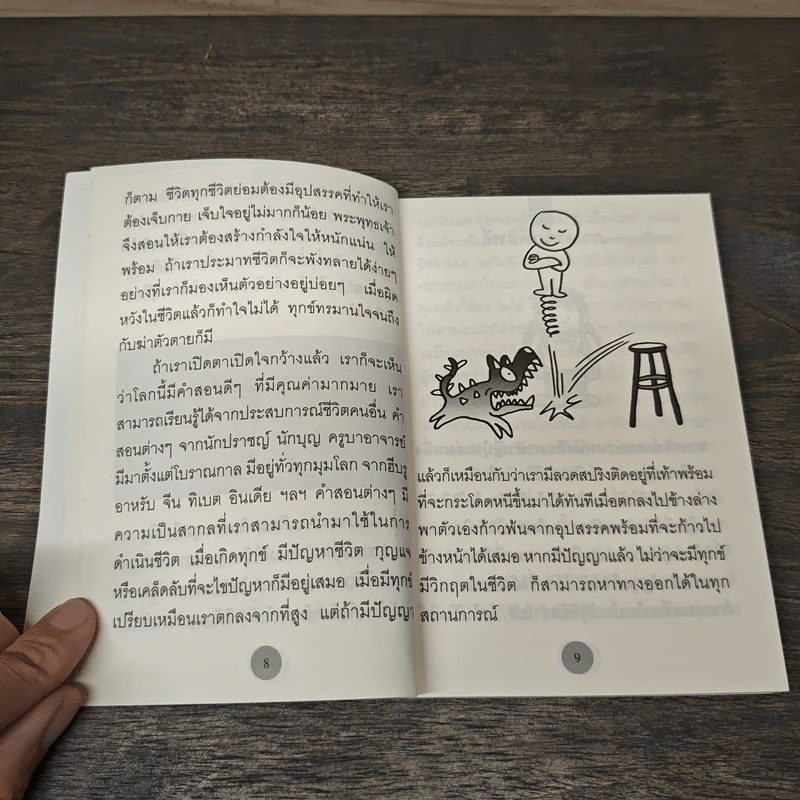 ก็ตาม ชีวิตทุกชีวิตย่อมต้องมีอุปสรรคที่ทำให้เรา
ต้องเจ็บกาย เจ็บใจอยู่ไม่มากก็น้อย พระพุทธเจ้า
จึงสอนให้เราต้องสร้างกำลังใจให้หนักแน่น ให้
พร้อม ถ้าเราประมาทชีวิตก็จะพังทลายได้ง่ายๆ
อย่างที่เราก็มองเห็นตัวอย่างอยู่บ่อยๆ เมื่อผิด
หวังในชีวิตแล้วก็ทำใจไม่ได้ ทุกข์ทรมานใจจนถึง
กับฆ่าตัวตายก็มี
ถ้าเราเปิดตาเปิดใจกว้างแล้ว เราก็จะเห็น
ว่าโลกนี้มีคำสอนดีๆ ที่มีคุณค่ามากมาย เรา
สามารถเรียนรู้ได้จากประสบการณ์ชีวิตคนอื่น คำ
สอนต่างๆ จากนักปราชญ์ นักบุญ ครูบาอาจารย์
มีมาตั้งแต่โบราณกาล มีอยู่ทั่วทุกมุมโลก จากฮีบรู
อาหรับ จีน ทิเบต อินเดีย ฯลฯ คำสอนต่างๆ มี
ความเป็นสากลที่เราสามารถนำมาใช้ในการ
ดำเนินชีวิต เมื่อเกิดทุกข์ มีปัญหาชีวิต กุญแจ
หรือเคล็ดลับที่จะไขปัญหาก็มีอยู่เสมอ เมื่อมีทุกข์
เปรียบเหมือนเราตกลงจากที่สูง แต่ถ้ามีปัญญา
8
แล้วก็เหมือนกับว่าเรามีลวดสปริงติดอยู่ที่เท้าพร้อม
ที่จะกระโดดหนีขึ้นมาได้ทันทีเมื่อตกลงไปข้างล่าง
พาตัวเองก้าวพ้นจากอุปสรรคพร้อมที่จะก้าวไป
ข้างหน้าได้เสมอ หากมีปัญญาแล้ว ไม่ว่าจะมีทุกข์
มีวิกฤตในชีวิต ก็สามารถหาทางออกได้ในทุก
สถานการณ์
9